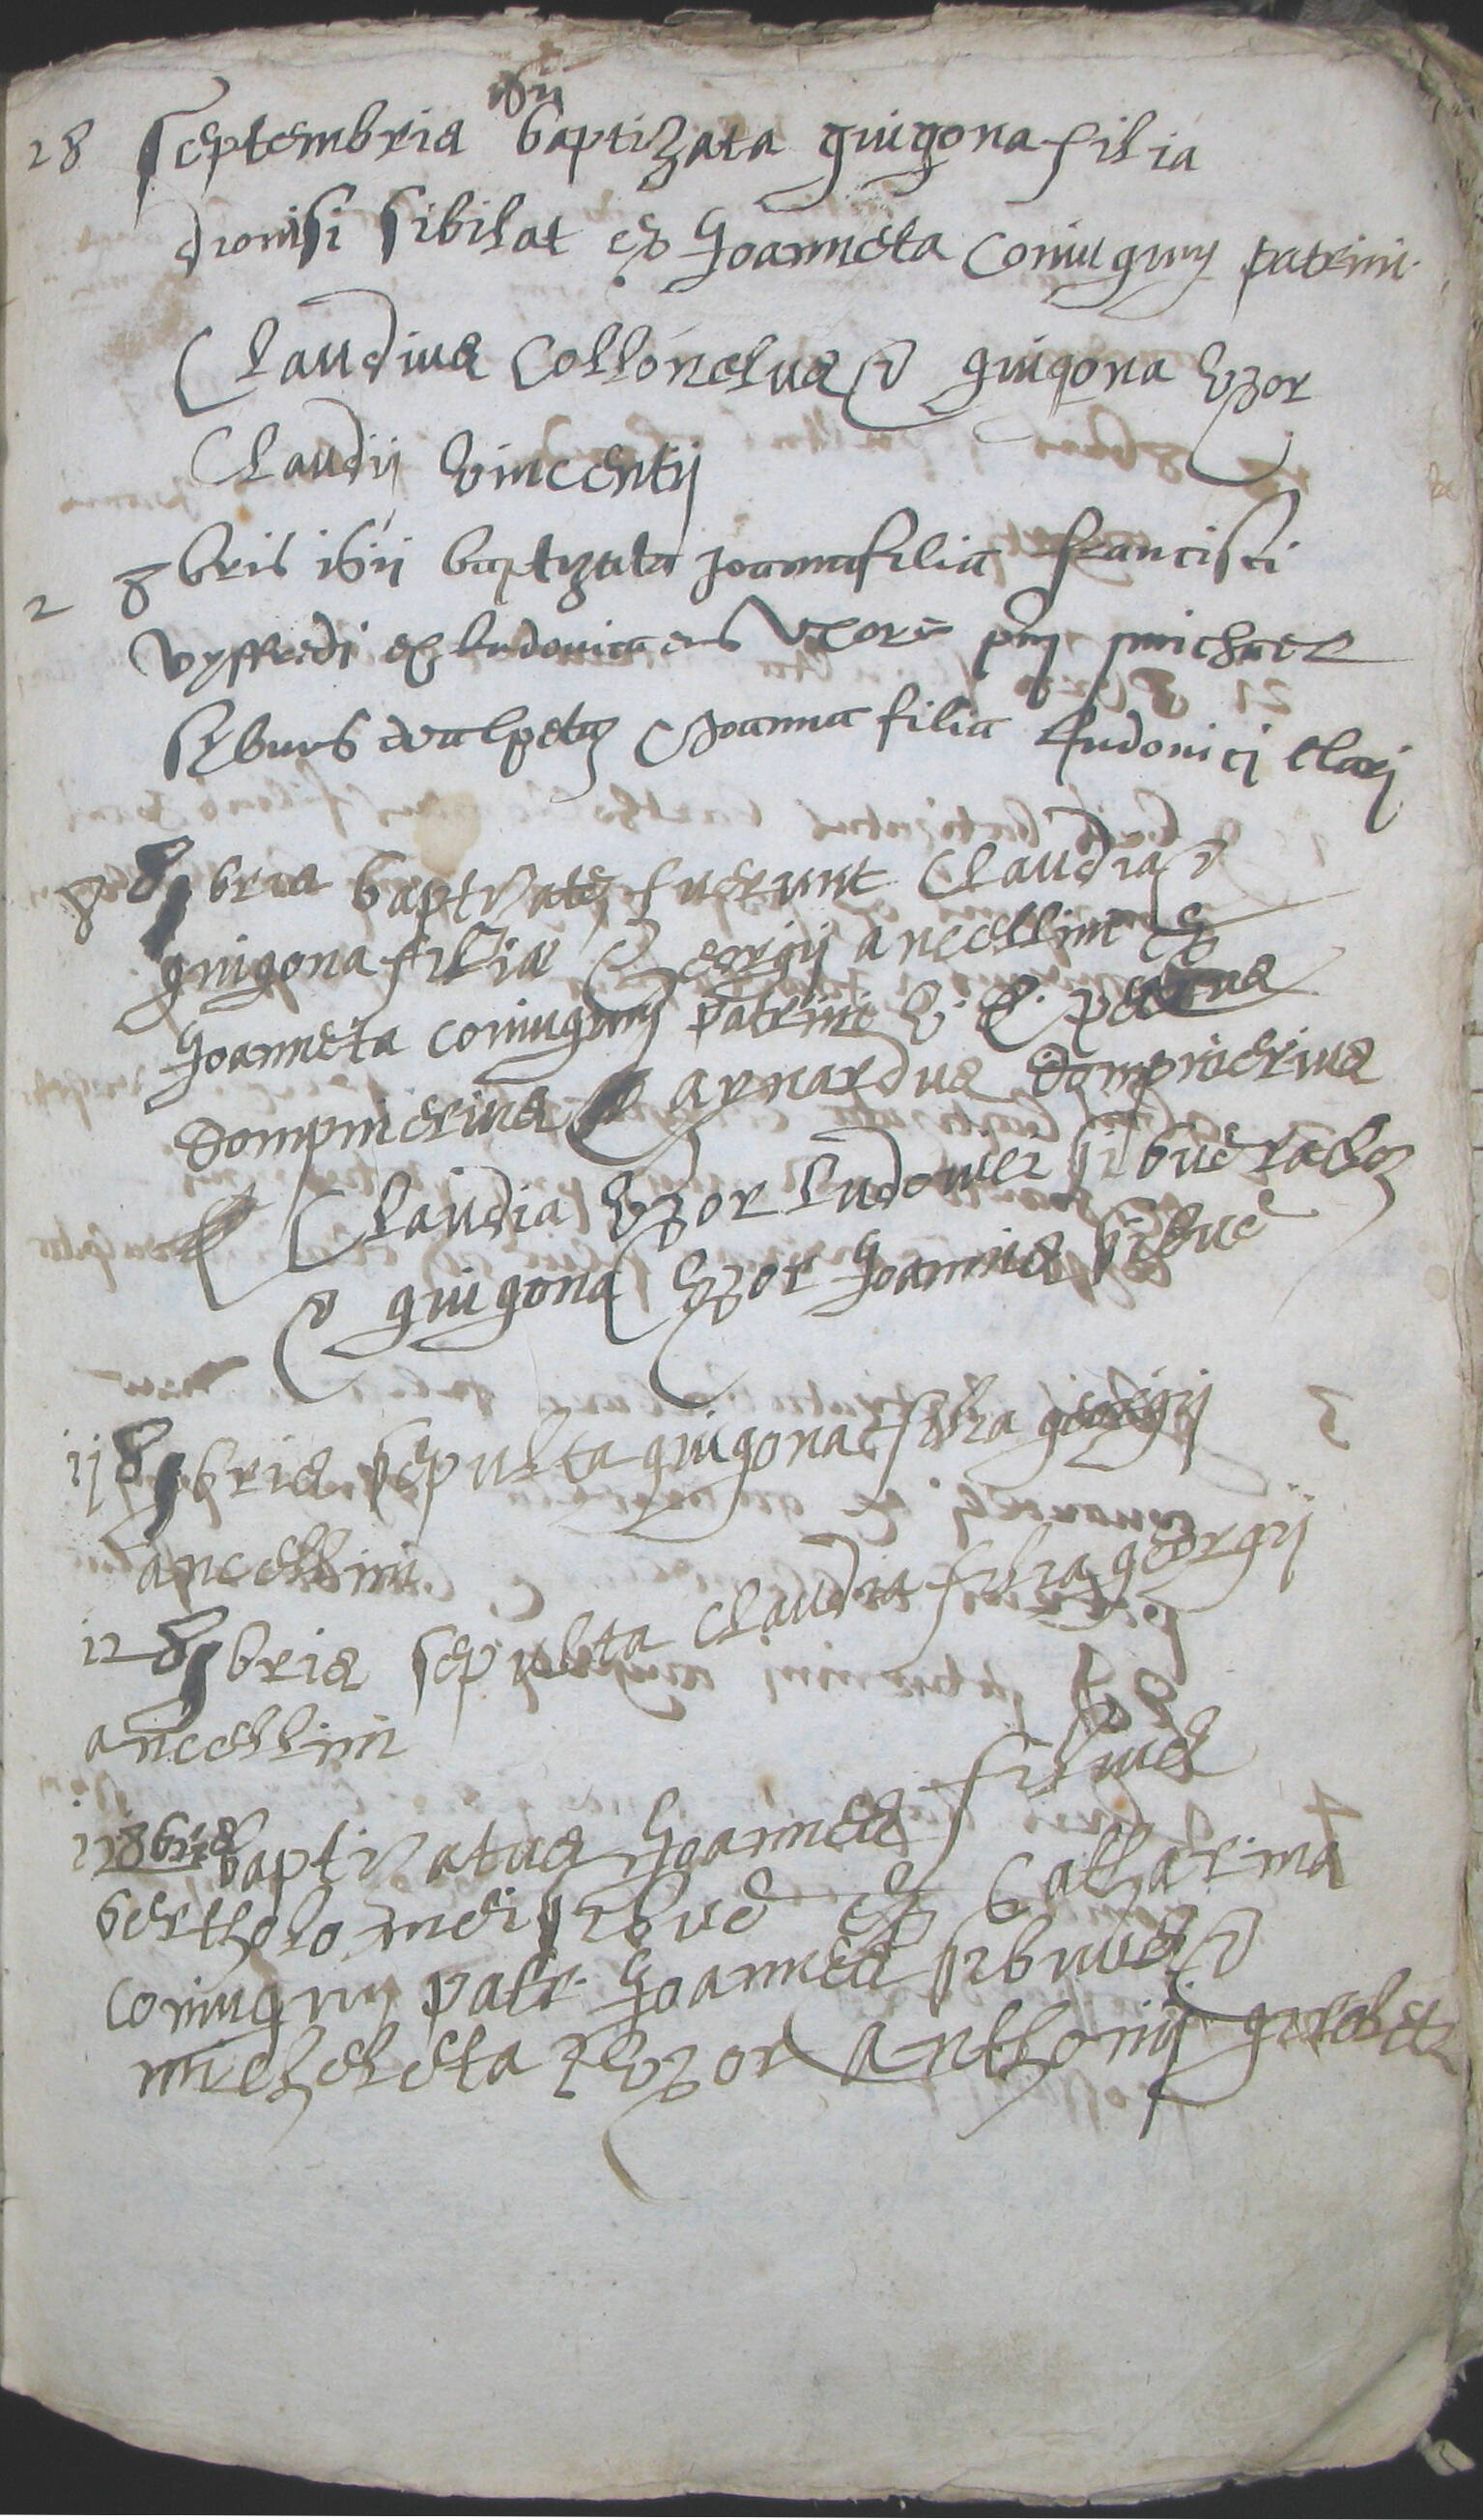 1611
28 septembris baptizata guigona filia
dionisi sibilat ex Joanneta coniugum patrini
Claudius Collonelus & guigona Uxor
Claudij Vincentij
2 8bris 1611 baptizata joanna filia francisci
vyffredi ex ludovica eius Uxore pnj michael
&Joanna filia Ludovici clarj
8 8bris baptizate fuerunt Claudia &
guigona filiae Georgij ancellini ex
Joanneta coniugum patrini V. D. petrus
Dompnierius aynardus Dompnierius
Claudia Uxor Ludovici
& guigona Uxor Joannis sibue
11 8bris sepulta guigona filia georgij
ancellini
12 8bris sepulta Claudia filia georgij
ancellini
12 8bris baptizatus Joannes filius
bertholomei sibue ex Catharina
coniugum patr. Joannes sibue &
micheleta Uxor anthonij